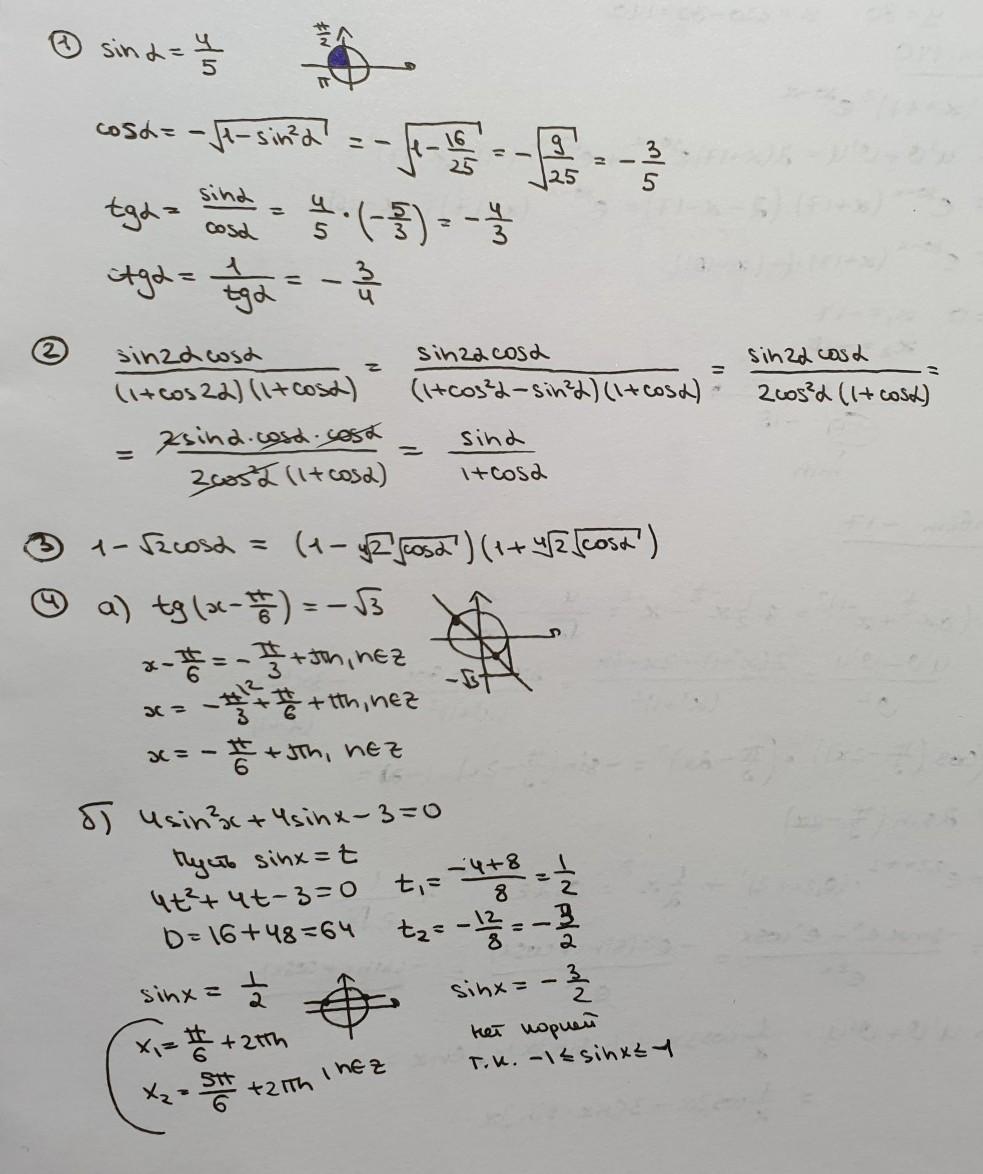 ① sin α = 4/5 π/2 π
cos α = -√(1 - sin²α) = -√(1 - 16/25) = -√(9/25) = -3/5
tg α = sin α/cos α = 4/5 · (-5/3) = -4/3
ctg α = 1/tg α = -3/4
② sin2α cosα/((1+cos2α)(1+cosα)) = sin2α cosα/((1+cos²α-sin²α)(1+cosα)) = sin2α cosα/(2cos²α(1+cosα)) =
= 2sinα·cosα·cosα/(2cos²α(1+cosα)) = sinα/(1+cosα)
③ 1-√2cosα = (1-⁴√2 √cosα)(1+⁴√2 √cosα)
④ а) tg(x-π/6) = -√3
x-π/6 = -π/3 + πn, n∈Z -√3
x = -π/3\2 + π/6 + πn, n∈Z
x = -π/6 + πn, n∈Z
б) 4sin²x + 4sinx - 3 = 0
Пусть sinx = t
4t² + 4t - 3 = 0 t₁ = (-4+8)/8 = 1/2
D = 16 + 48 = 64 t₂ = -12/8 = -3/2
sinx = 1/2 sinx = -3/2
x₁ = π/6 + 2πn нет корней
x₂ = 5π/6 + 2πn, n∈Z т.к. -1 ≤ sinx ≤ 1